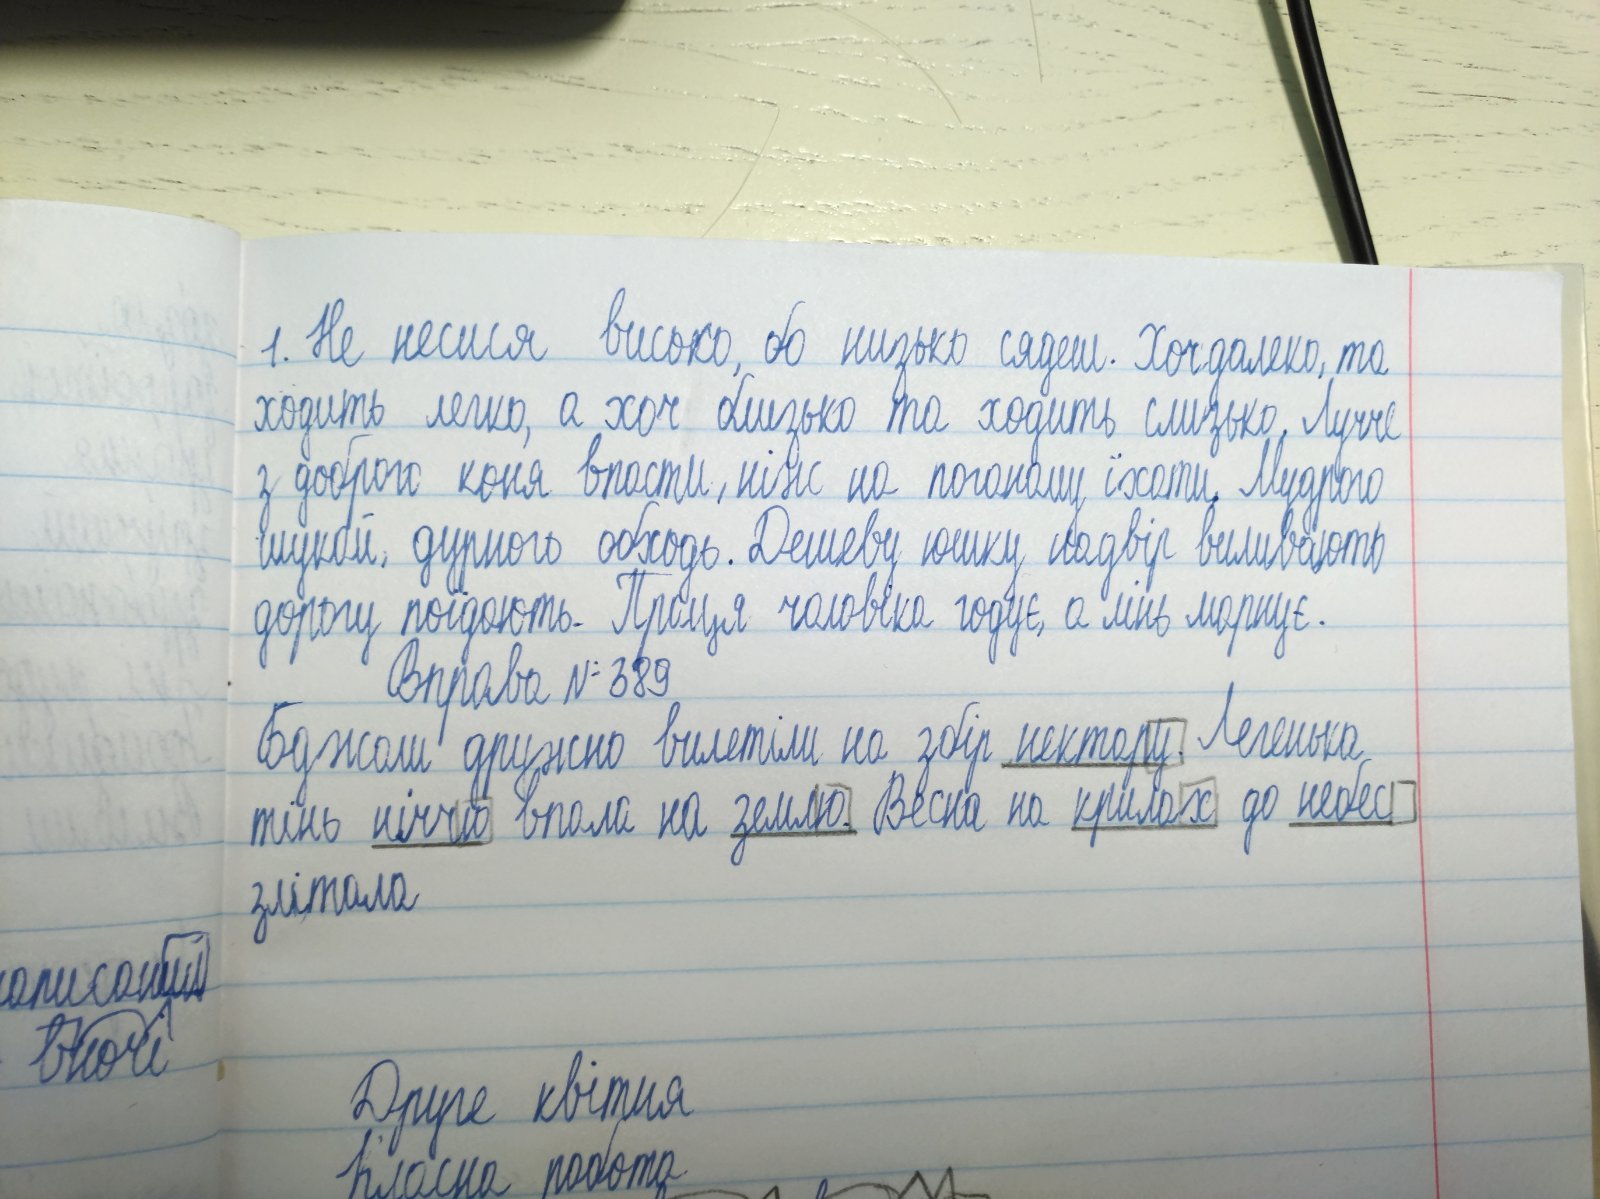 1. Не несися високо, бо низько сядеш. Хоч далеко, та
ходить легко, а хоч близько та ходить слизько. Лучче
з доброго коня впасти, ніж на поганому їхати. Мудрого
шукай, дурного обходь. Дешеву юшку надвір виливають
дорогу поїдають. Праця чоловіка годує, а лінь марнує.
Вправа № 389
Бджоли дружно вилетіли на збір нектару. Легенька
тінь ніччю впала на землю. Весна на крилах до небес
злітала
написаний
вночі
Друге квітня
Класна робота